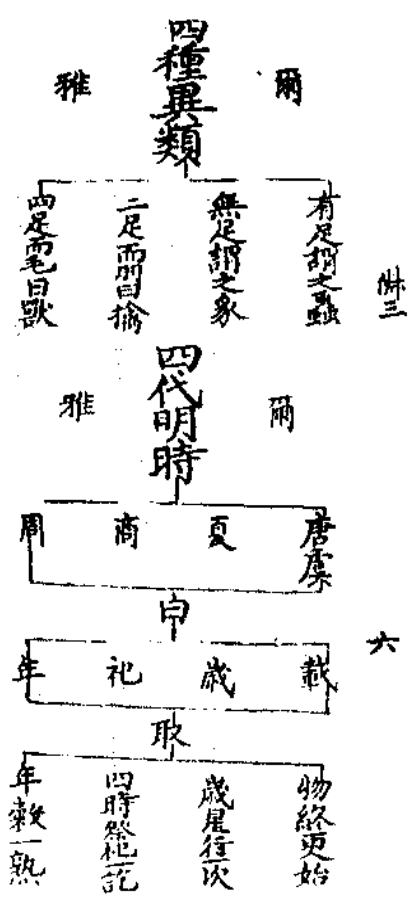 四種異類
爾雅
有足謂之蟲
無足謂之豸
二足而羽曰禽
四足而毛曰獸
四代明時
爾雅
唐虞
夏
商
周
曰
載
歲
祀
年
取
物終更始
歲星行一次
四時祭祀一訖
年穀一熟
三
六